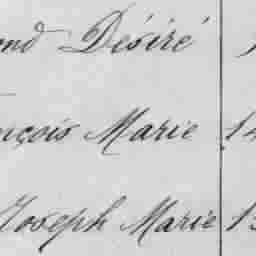 ond Désiré 1
nçois Marie 14
Joseph Marie 13